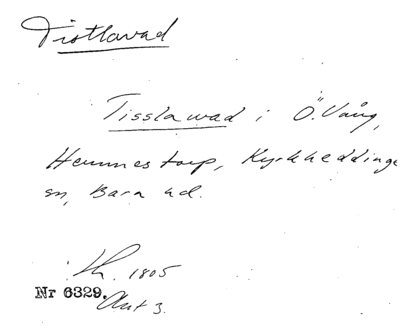 Tistlavad
Tisslawad i Ö. Vång,
Hemmestorp, Kyrkheddinge
sn, Bara hd.
1805
Nr 6329. Akt 3.